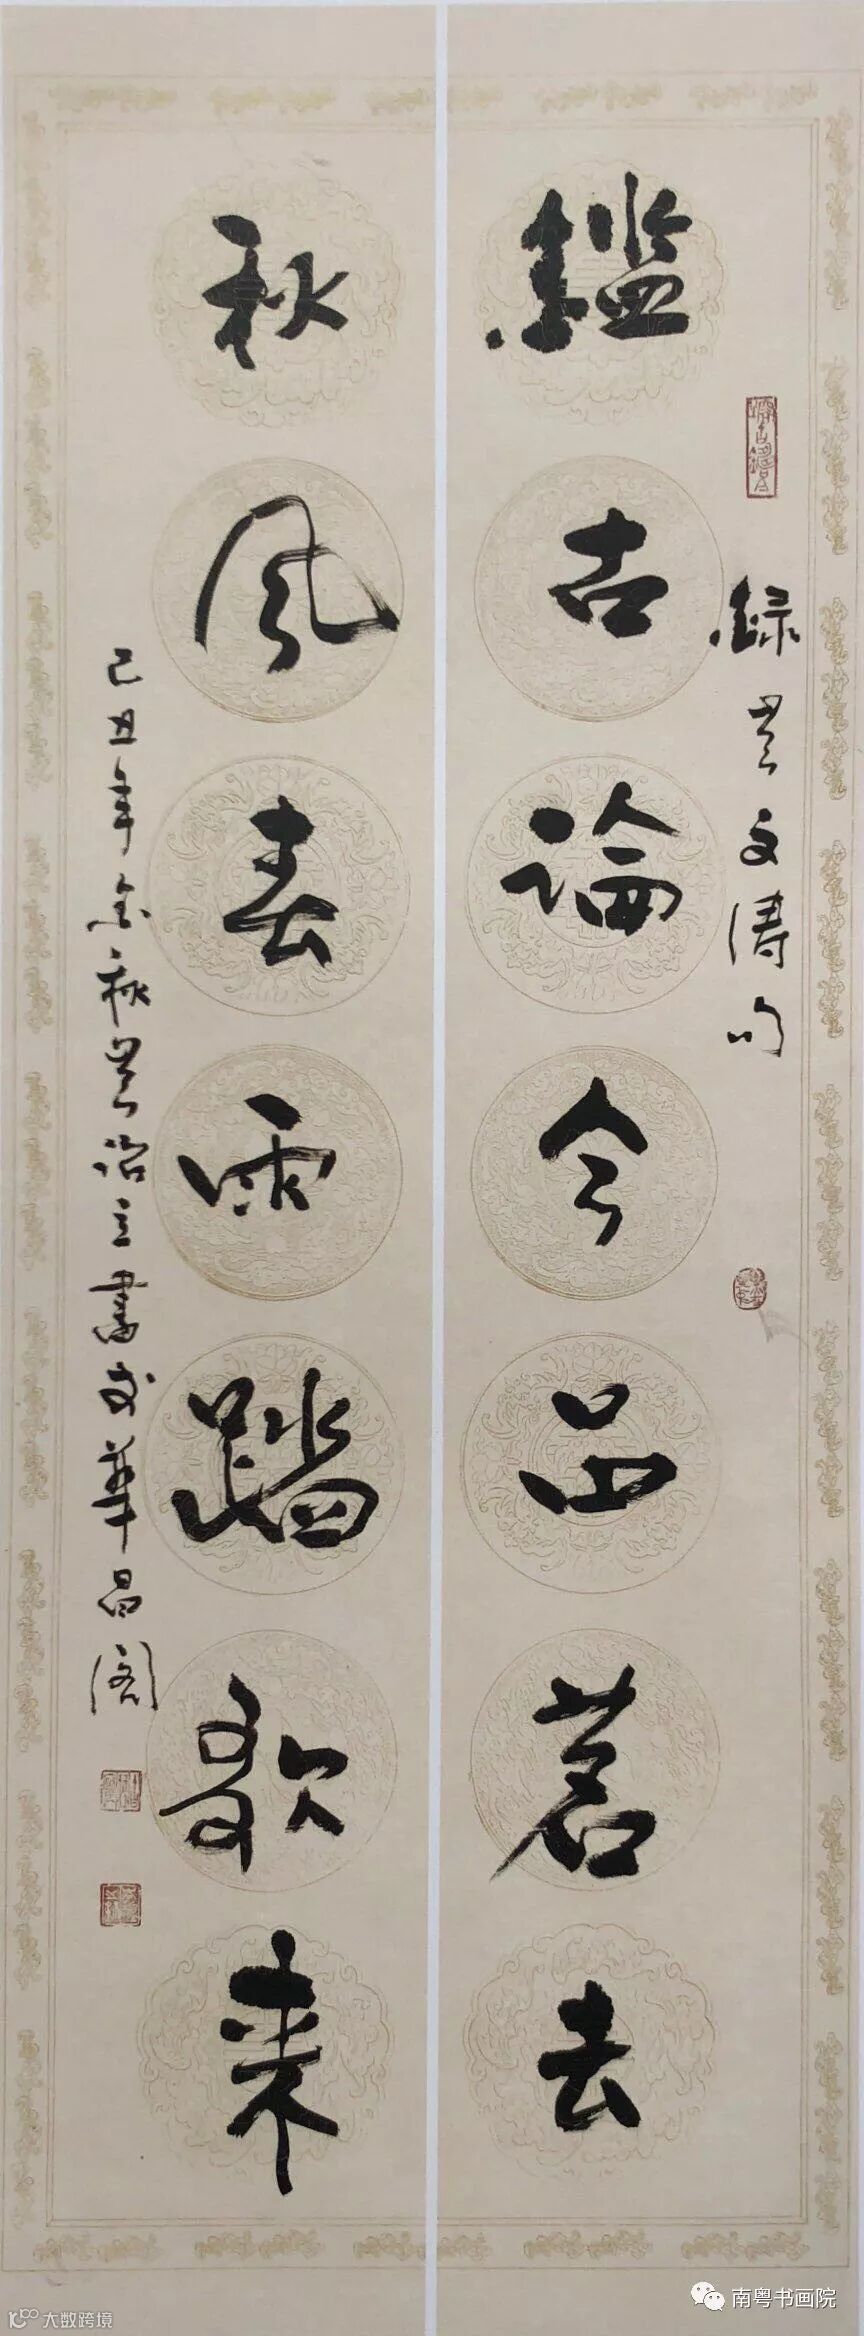 鑑古論今品茗去
録文濤句
秋風春雨踏歌来
己丑年金秋立書於華昌阁
南粤书画院
大数跨境